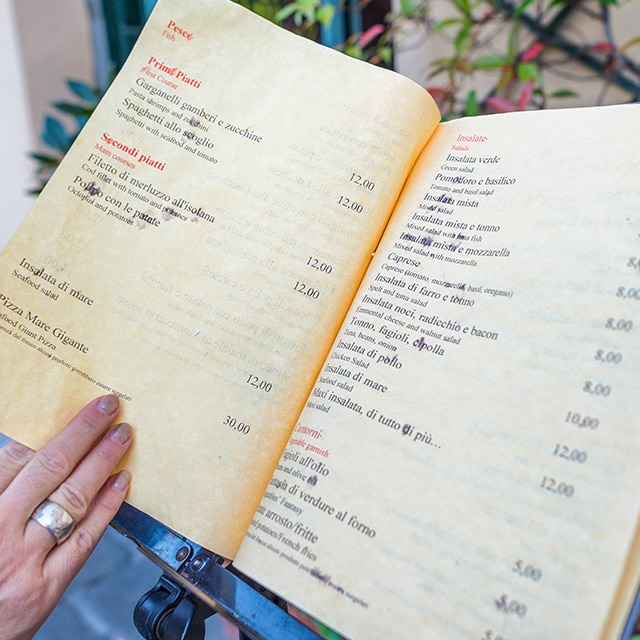 Pesce
Fish
Primi Piatti
First Course
Garganelli gamberi e zucchine
Pasta shrimps and zucchini
12,00
Spaghetti allo scoglio
Spaghetti with seafood and tomato
12,00
Secondi piatti
Main courses
Filetto di merluzzo all'isolana
Cod fillet with tomato and potatoes
12,00
Polipo con le patate
Octopus and potatoes
12,00
Insalata di mare
Seafood salad
12,00
Pizza Mare Gigante
Giant Pizza
30,00
Insalate
Salads
Insalata verde
Green salad
Pomodoro e basilico
Tomato and basil salad
Insalata mista
Mixed salad
Insalata mista e tonno
Mixed salad with tuna fish
Insalata mista e mozzarella
Mixed salad with mozzarella
Caprese
Caprese (tomato, mozzarella, basil, oregano)
8,00
Insalata di farro e tonno
Spelt and tuna salad
8,00
Insalata noci, radicchio e bacon
Emmental cheese and walnut salad
8,00
Tonno, fagioli, cipolla
Tuna, beans, onion
8,00
Insalata di pollo
Chicken Salad
10,00
Insalata di mare
Seafood salad
12,00
Maxi insalata, di tutto di più...
salad
12,00
Contorni
Vegetable garnish
Fagioli all'olio
and olive oil
5,00
di verdure al forno
Fantasy
5,00
arrosto/fritte
potatoes/French fries
5,00